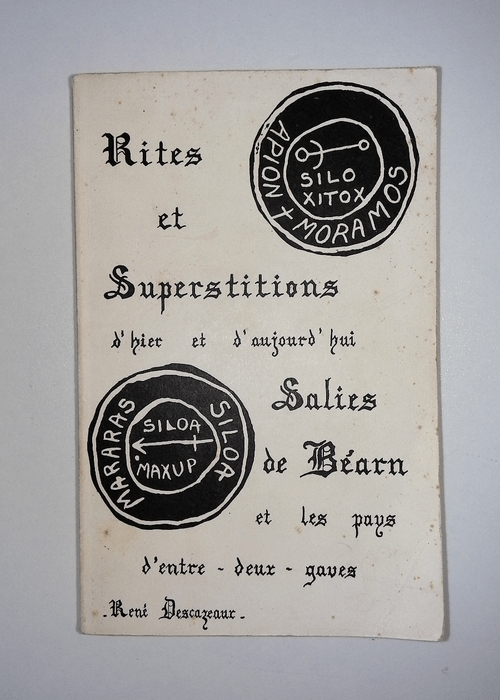 Rites
et
Superstitions
d'hier et d'aujourd'hui
Salies
de Béarn
et les pays
d'entre - deux - gaves
- René Descazeaux -
APION + MORAMOS
SILO
XITOX
MARARAS SILOA
SILOA
MAXUP